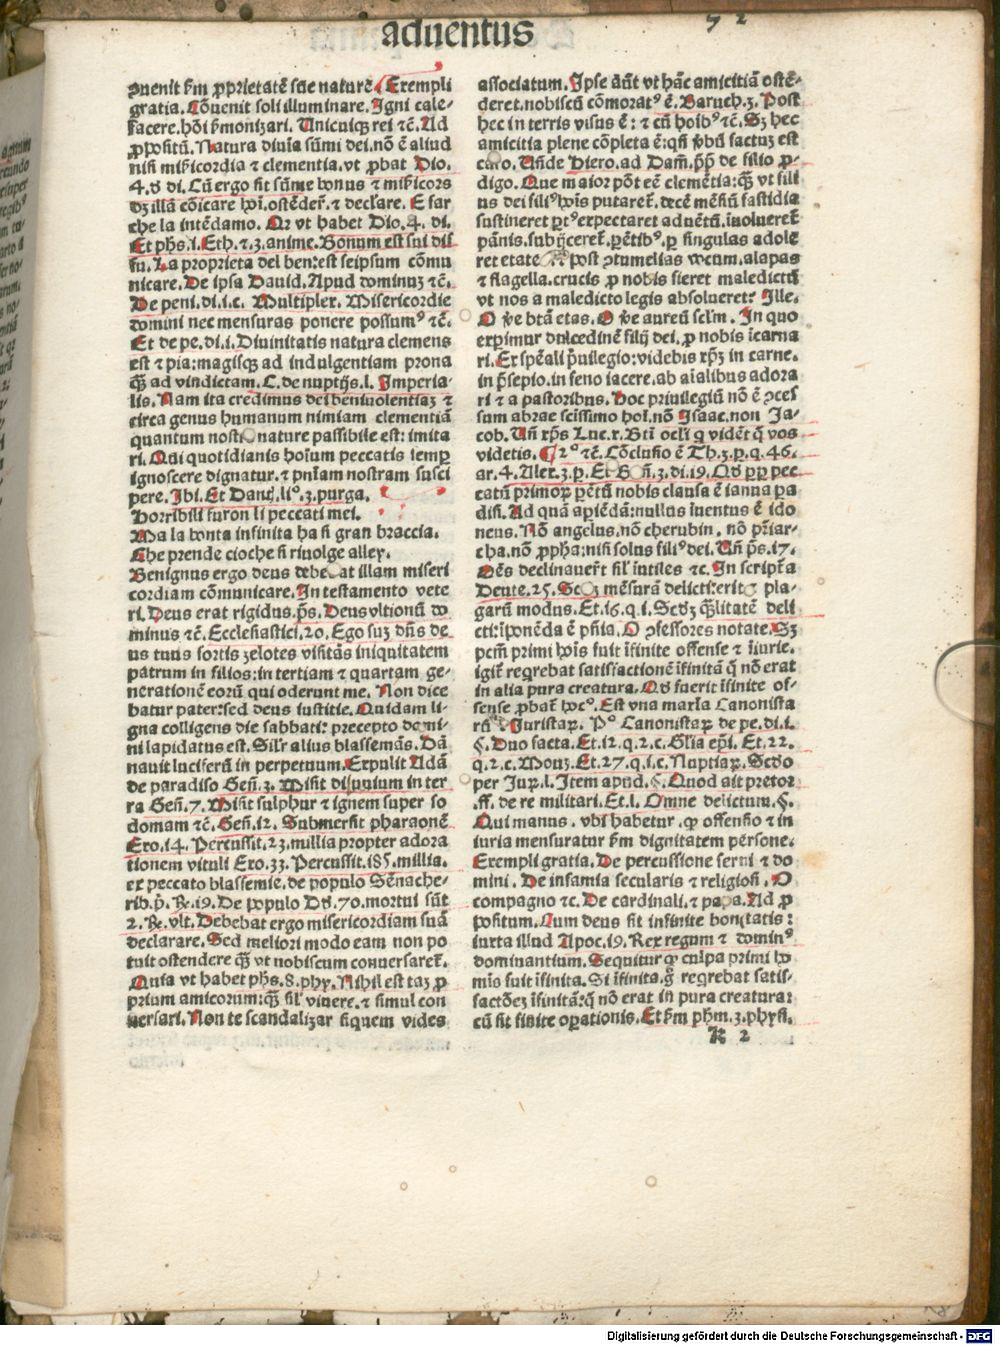 aduentus
ꝯuenit ẜm ꝓprietatẽ sue naturẽ. Exempli
gratia. Cõuenit soli illuminare. Igni cale-
facere. hõi ẜmonizari. Unicuiqꝫ rei ⁊c̃. Ad
ꝓpositũ. Natura diuia sũmi dei. nõ ẽ aliud
nisi mĩsericordia ⁊ clementia. vt ꝓbat Dio.
4. ð di. Cũ ergo sit sũme bonus ⁊ misĩcors
dꝫ illã cõicare hoĩ. ostẽder̃. ⁊ declare. E far
che la intẽdamo. Qꝛ vt habet Dio. 4. di.
Et phs̃. i. Eth. ⁊. 3. anime. Bonum est sui dif
fu. La proprieta del ben: est seipsum cõmu
nicare. De ipsa Dauid. Apud dominuꝫ ⁊c̃.
De peni. di. i. c. Multiplex. Misericordie
domini nec mensuras ponere possumꝰ ⁊c̃.
Et de pe. di. i. Diuinitatis natura clemens
est ⁊ pia: magisqꝫ ad indulgentiam prona
qꝫ̃ ad vindictam. C. de nuptijs. l. Imperia-
lis. Nam ita credimus dei beniuolentiaꝫ ⁊
circa genus humanum nimiam clementiã
quantum nostre nature passibile est: imita
ri. Qui quotidianis hoĩum peccatis semꝑ
ignoscere dignatur. ⁊ pñiam nostram susci
pere. Ibi. Et Danť. liº. 3. purga.
Horribili furon li peccati mei.
Ma la bonta infinita ha si gran braccia.
Che prende cioche si riuolge alley.
Benignus ergo deus debebat illam miseri
cordiam cõmunicare. In testamento vete
ri. Deus erat rigidus. ps̃. Deus vltionũ do
minus ⁊c̃. Ecclesiastici. 20. Ego suꝫ dñs de
us tuus fortis zelotes visitãs iniquitatem
patrum in filios: in tertiam ⁊ quartam ge-
nerationẽ eorũ qui oderunt me. Non dice
batur pater: sed deus iustitie. Quidam li-
gna colligens die sabbati: precepto domi-
ni lapidatus est. Sil̃r alius blassemãs. Dã
nauit luciferũ in perpetuum. Expulit Adã
de paradiso Geñ. 3. Misit diluuium in ter
ra Geñ. 7. Misit sulphur ⁊ ignem super so
domam ⁊c̃. Geñ. 12. Submersit pharaonẽ
Exo. 14. Percussit. 23. millia propter adora
tionem vituli Exo. 33. Percussit. 185. millia.
ex peccato blassemie. de populo Sẽnache-
rib. ꝑ. Re. 19. De populo Dð. 70. mortui sũt
2. Re. vlt. Debebat ergo misericordiam suã
declarare. Sed meliori modo eam non po
tuit ostendere qꝫ̃ vt nobiscum conuersaret̃.
Quia vt habet phs̃. 8. phy. Nihil est taꝫ ꝓ
prium amicorum: qꝫ̃ sil̃ viuere. ⁊ simul con
uersari. Non te scandalizar siquem vides
associatum. Ipse aũt vt hãc amicitiã ostẽ-
deret. nobiscũ cõmoratꝰ ẽ. Baruch. 3. Post
hec in terris visus ẽ: ⁊ cũ hoĩbꝰ ⁊c̃. Sꝫ hec
amicitia plene cõpleta ẽ: qñ ꝟbũ factuꝫ est
caro. Uñde Hiero. ad Dam̃. pp̃ de filio ꝓ-
digo. Que maior põt eẽ clemẽtia: qꝫ̃ vt fili
us dei filiꝰ hoĩs putaret̃. decẽ mẽsiũ fastidia
sustineret ꝑtꝰ expectaret aduẽtũ. inuolueret̃
pãnis. subijceret̃. pẽtibꝰ. ꝑ singulas adole
ret etate post ꝯtumelias vocum. alapas
⁊ flagella. crucis ꝓ nobis fieret maledictũ
vt nos a maledicto legis absolueret? Ille.
O ꝟe btã etas. O ꝟe aureũ secl̃m. In quo
expimur dulcedinẽ filij dei. ꝓ nobis ĩcarna
ri. Ex spẽali ṕuilegio: videbis xp̃ꝫ in carne.
in p̃sepio. in feno iacere. ab aĩalibus adora
ri ⁊ a pastoribus. Hoc priuilegiũ nõ ẽ ꝯces
sum abrae sc̃issimo hoĩ. nõ Isaac. non Ja-
cob. Uñ xp̃s Luc. x. Btĩ ocl̃i q̃ vidẽt q̃ vos
videtis. ¶ 2º ⁊c̃. Cõclusio ẽ Th. 3. p. q. 46.
ar. 4. Alex. 3. p. Et Boñ. 3. di. 19. Qð ꝓp pec
catũ primoꝝ pẽtũ nobis clausa ẽ ianua pa
disi. Ad quã apiẽdã: nullus ĩuentus ẽ ido
neus. Nõ angelus. nõ cherubin. nõ pr̃iar-
cha. nõ ꝓpħa: nisi solus filiꝰ dei. Uñ ps̃. 17.
Oẽs declinauer̃t sil̃ ĩutiles ⁊c. In script̃a
Deute. 25. Scðꝫ mẽsurã delicti: erit ⁊ pla-
garũ modus. Et. 16. q. i. Scðꝫ q̃litatẽ deli
cti: ĩponẽda ẽ pñia. O ꝯfessores notate. Sꝫ
pctm̃ primi hoĩs fuit ĩfinite offense ⁊ ĩiurie.
igit̃ reqrebat satisfactionẽ ĩfinitã q̃ nõ erat
in alia pura creatura. Qð fuerit ĩfinite of-
fense ꝓbat̃ hocº. Est vna maxĩa Canonista
rũ ⁊ Juristaꝝ. Pº Canonistaꝝ de pe. di. i.
§. Duo facta. Et. 12. q. 2. c. Gl̃ia epĩ. Et. 22.
q. 2. c. Mouꝫ. Et. 27. q. i. c. Nuptiaꝝ. Scðo
per Juꝝ. l. Item apud. §. Quod ait pretor
.ff. de re militari. Et. l. Omne delictum. §.
Qui manus. vbi habetur. qꝫ offensio ⁊ in
iuria mensuratur ẜm dignitatem persone.
Exempli gratia. De percussione serui ⁊ do
mini. De infamia secularis ⁊ religiosi. O
compagno ⁊c. De cardinali. ⁊ papa. Ad ꝓ
positum. Cum deus sit infinite bonitatis:
iuxta illud Apoc. 19. Rex regum ⁊ dominꝰ
dominantium. Sequitur qꝫ culpa primi ho
mĩs fuit ĩfinita. Si ĩfinita. g̃ reqrebat satis-
factõeꝫ ĩfinitã: q̃ nõ erat in pura creatura:
cũ sit finite oꝑationis. Et ẜm pħm. 3. physi.
K 2
Digitalisierung gefördert durch die Deutsche Forschungsgemeinschaft - DFG